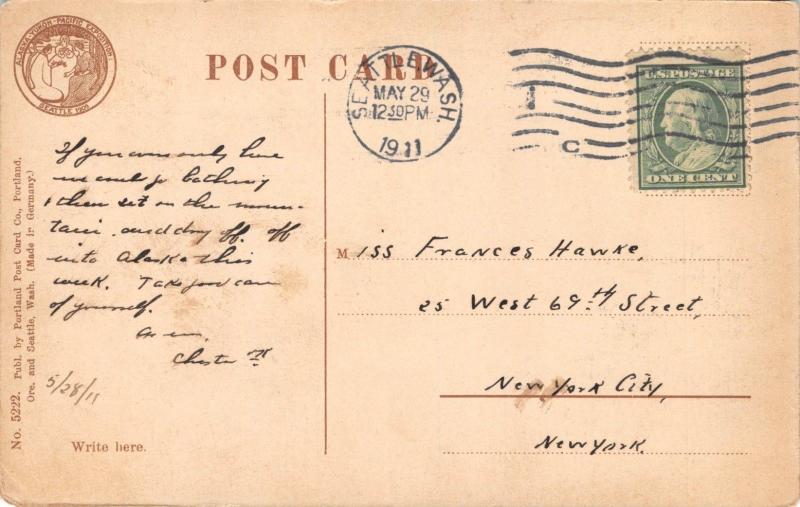 ALASKA-YUKON-PACIFIC EXPOSITION
SEATTLE 1909
POST CARD
SEATTLE, WASH.
MAY 29
12 30 PM
1911
C
U.S. POSTAGE
ONE CENT
If you were only here
we could go bathing
& then sit on the moun-
tain and dry off. Off
into Alaska this
week. Take good care
of yourself.
As ever,
Chester
5/28/11
Write here.
Miss Frances Hawke,
25 West 69th Street,
New York City,
New York.
No. 5222. Publ. by Portland Post Card Co., Portland,
Ore. and Seattle, Wash. (Made in Germany.)